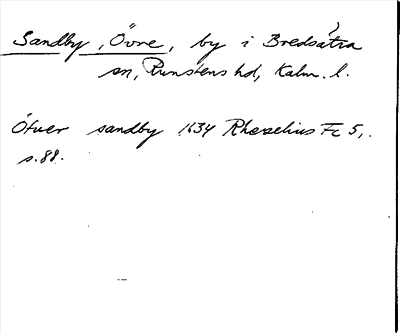 Sandby, Övre, by i Bredsätra
sn, Runstens hd, Kalm. l.
Öfver sandby 1634 Rhezelius Fc 5,
s. 88.